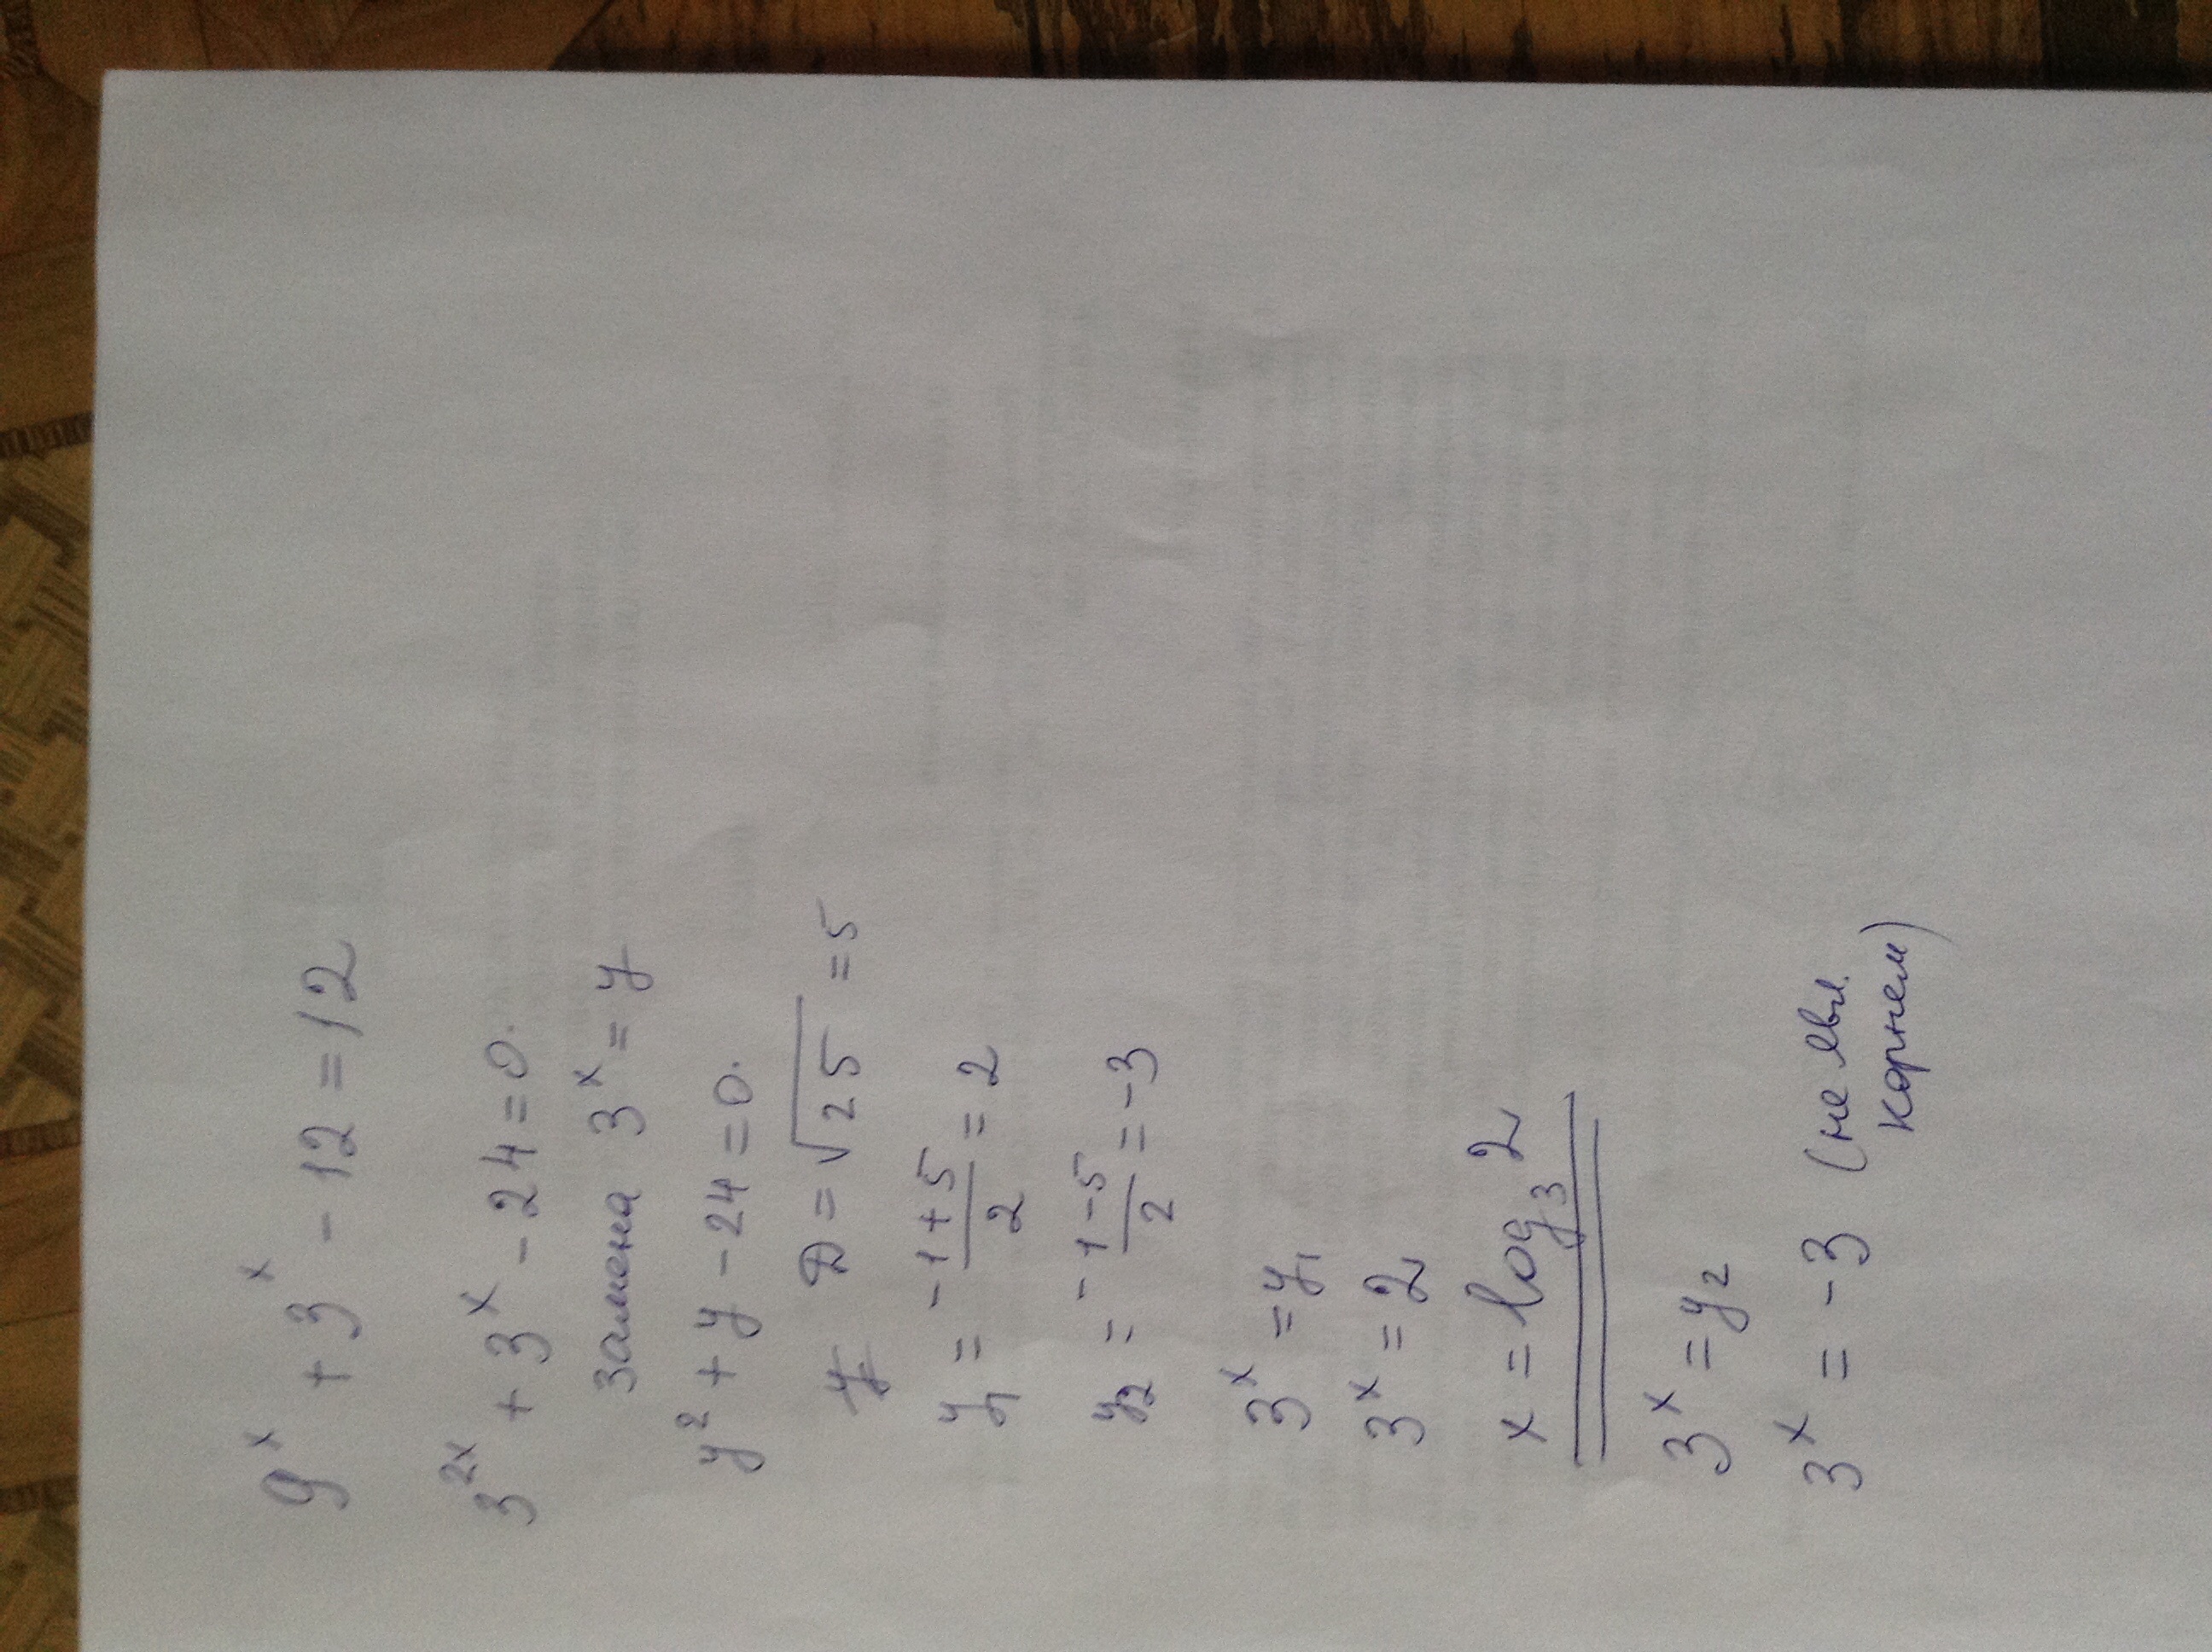 9ˣ + 3ˣ - 12 = 12
3²ˣ + 3ˣ - 24 = 0.
замена 3ˣ = y
y² + y - 24 = 0.
D = √25 = 5
y₁ = -1+5/2 = 2
y₂ = -1-5/2 = -3
3ˣ = y₁
3ˣ = 2
x = log₃ 2
3ˣ = y₂
3ˣ = -3 (не явл.
корнем)